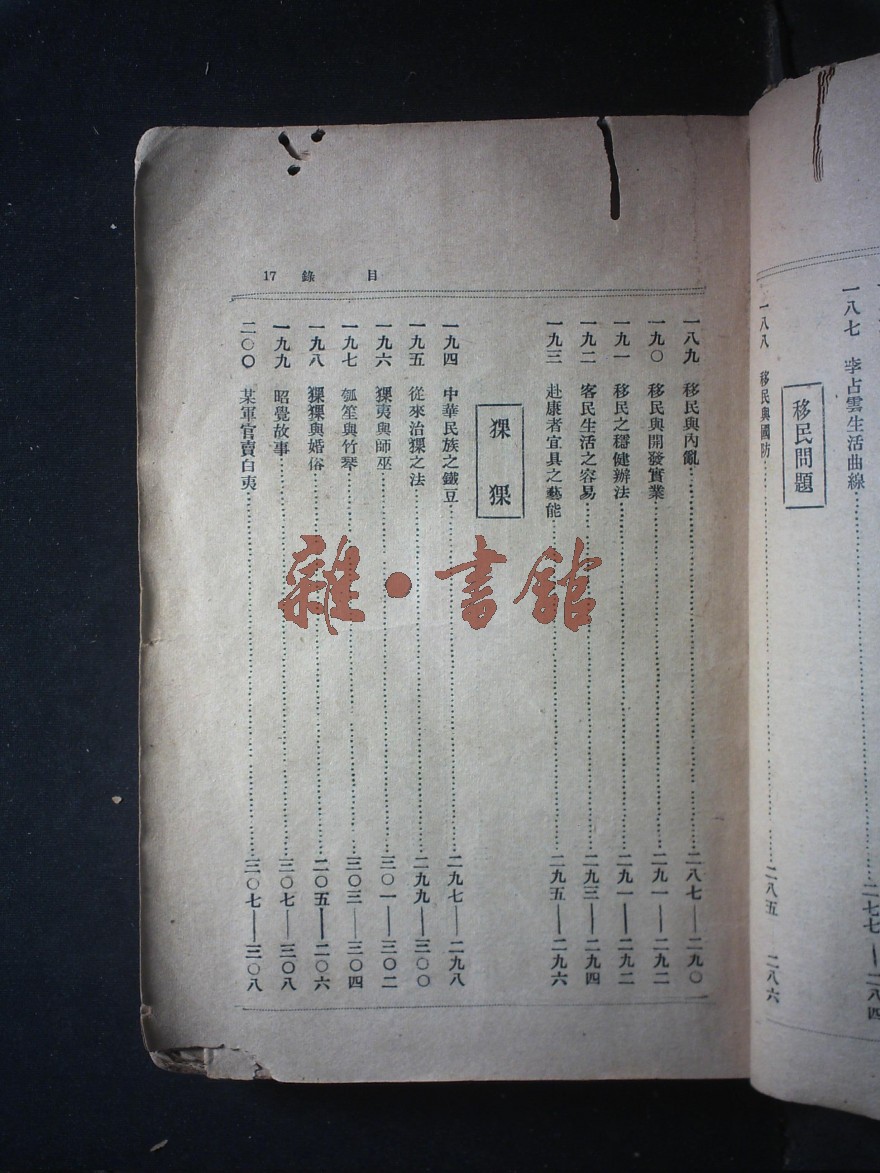 一八七 李占雲生活曲線 二七七—二八四
移民問題
一八八 移民與國防 二八五 二八六
目錄 17
一八九 移民與內亂 二八七—二九〇
一九〇 移民與開發實業 二九一—二九二
一九一 移民之穩健辦法 二九一—二九二
一九二 客民生活之容易 二九三—二九四
一九三 赴康者宜具之藝能 二九五—二九六
猓猓
一九四 中華民族之鐵豆 二九七—二九八
一九五 從來治猓之法 二九九—三〇〇
一九六 猓夷與師巫 三〇一—三〇二
一九七 瓠笙與竹琴 三〇三—三〇四
一九八 猓猓與婚俗 二〇五—二〇六
一九九 昭覺故事 三〇七—三〇八
二〇〇 某軍官賣白夷 三〇七—三〇八
雜·書館